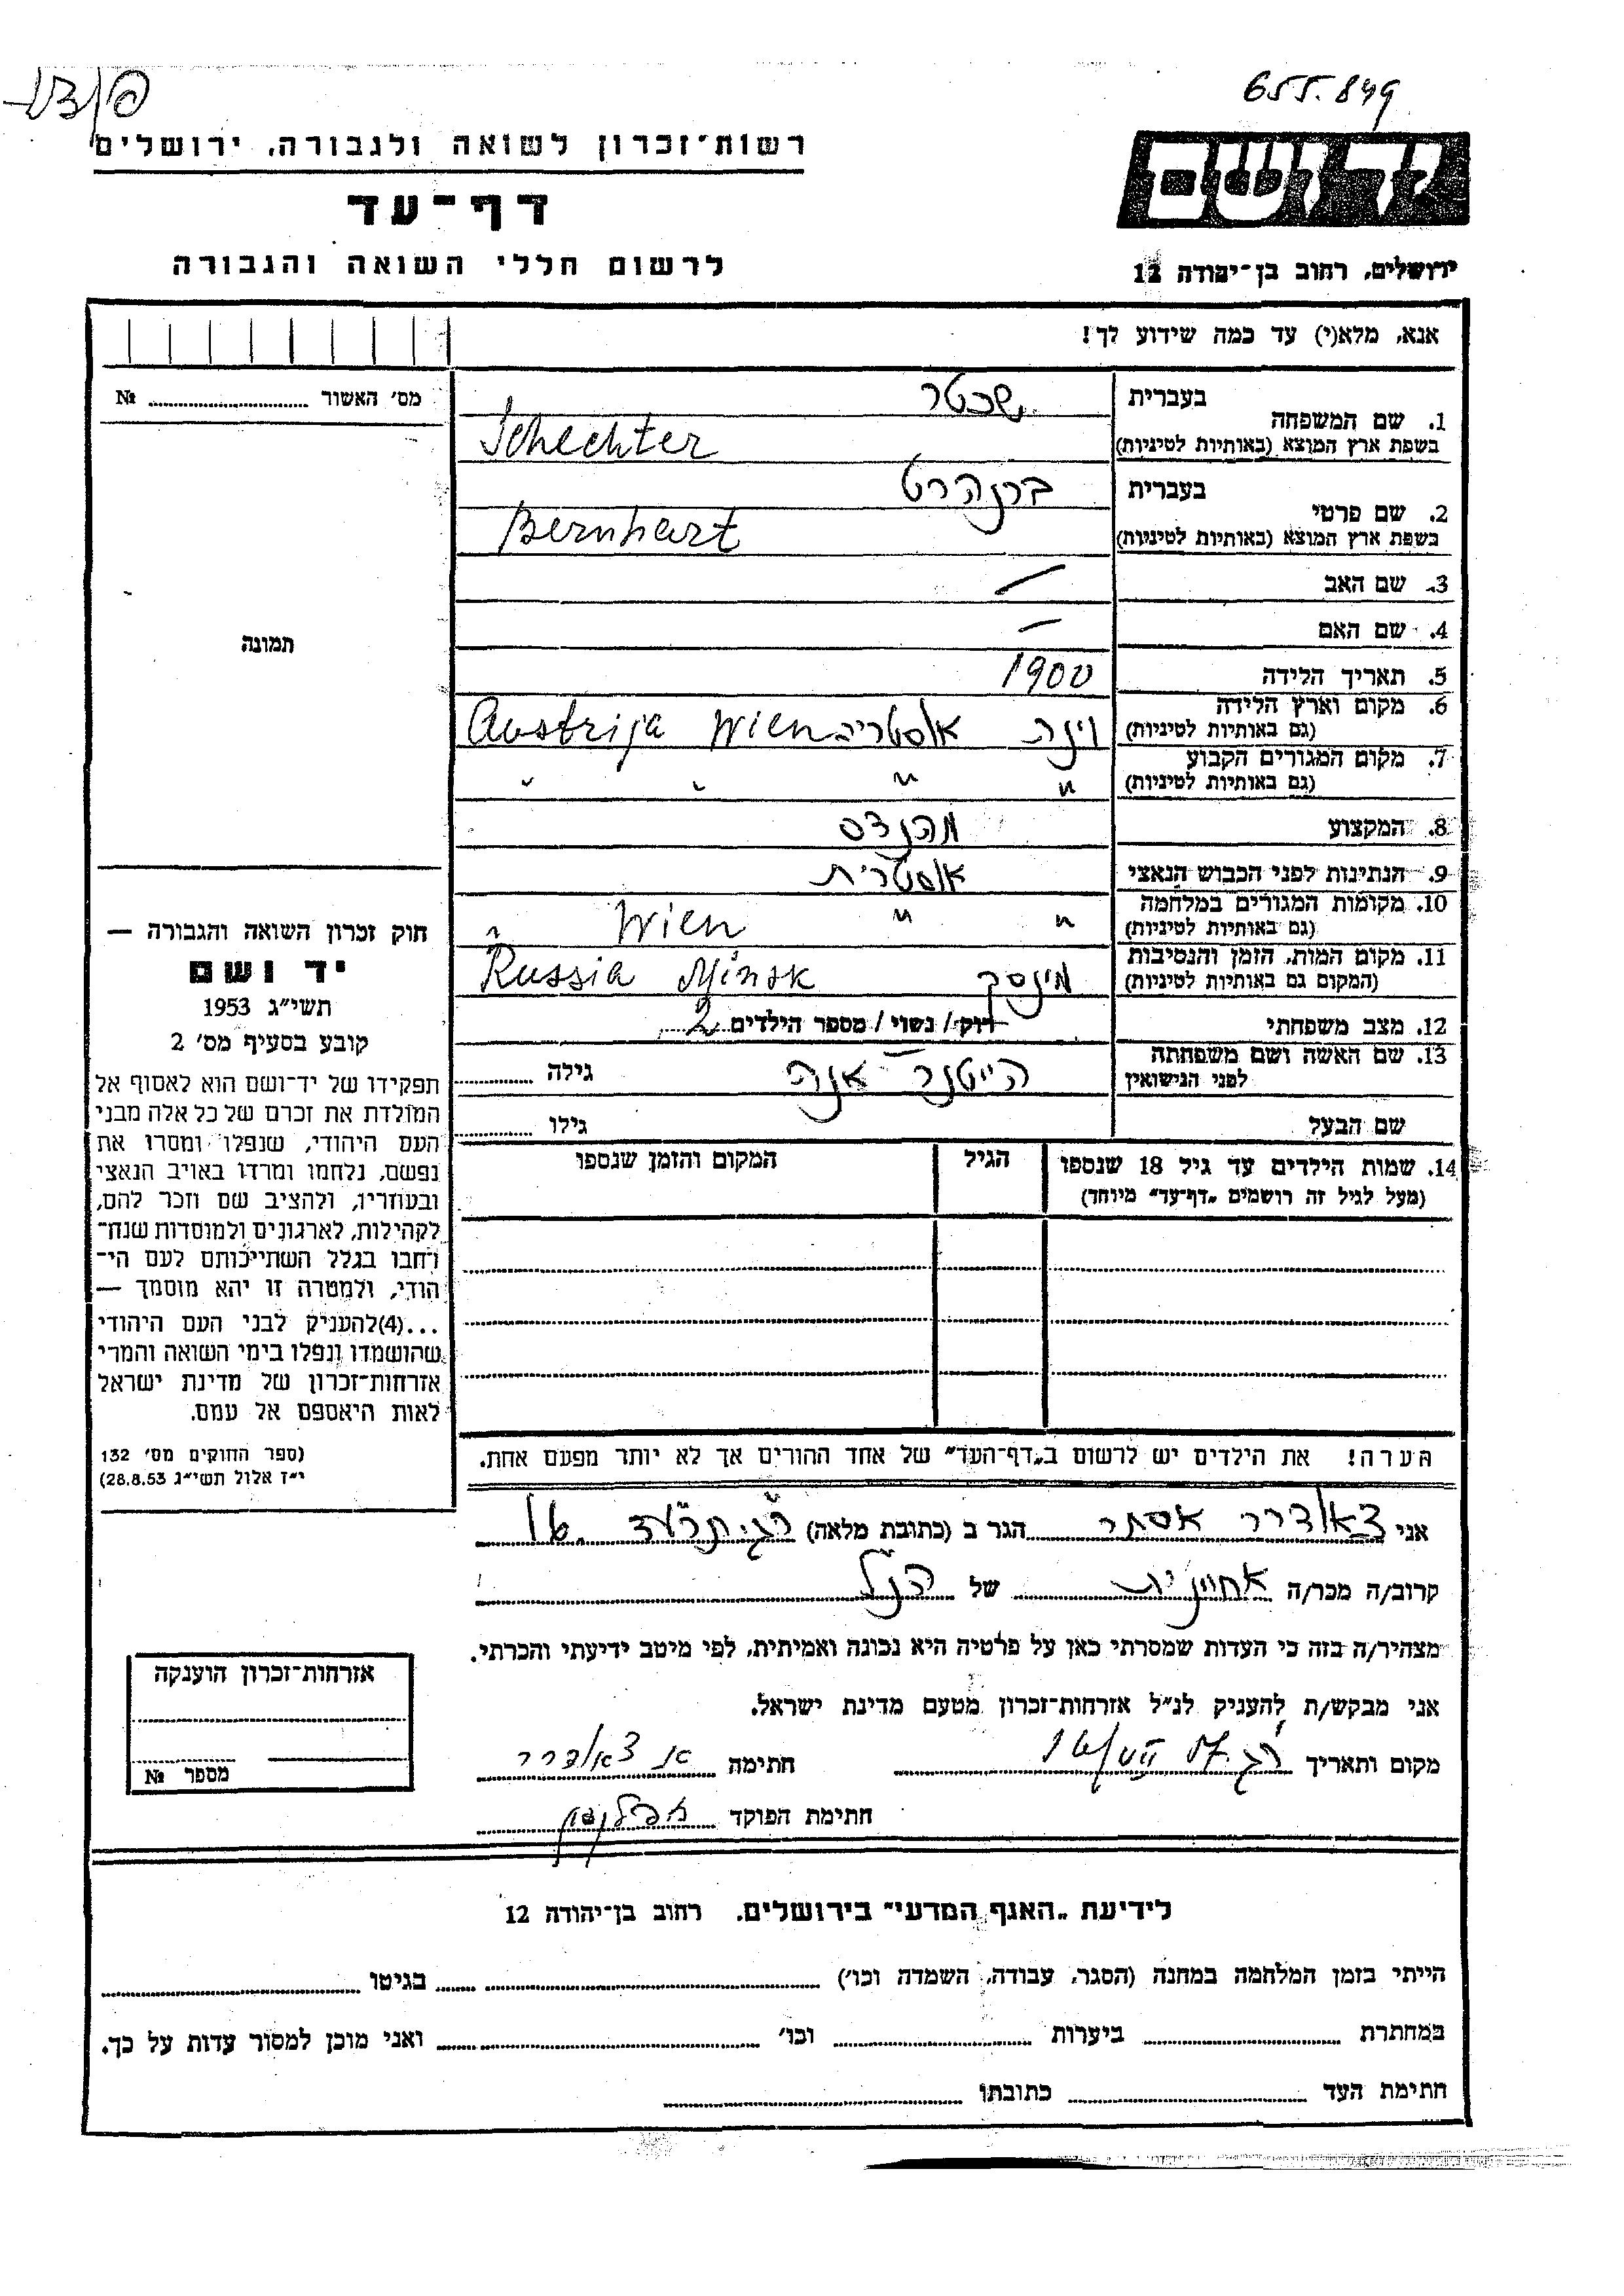 655.849
רשות־זכרון לשואה ולגבורה, ירושלים
יד ושם
דף־עד
לרשום חללי השואה והגבורה
ירושלים, רחוב בן־יהודה 12
אנא, מלא(י) עד כמה שידוע לך!
מס׳ האשור № 
1. שם המשפחה
בעברית שכטר
בשפת ארץ המוצא (באותיות לטיניות) Schechter
2. שם פרטי
בעברית ברנהרט
בשפת ארץ המוצא (באותיות לטיניות) Bernhart
3. שם האב —
4. שם האם —
תמונה
5. תאריך הלידה 1900
6. מקום וארץ הלידה (גם באותיות לטיניות) וינה אוסטריה Wien Austrija
7. מקום המגורים הקבוע (גם באותיות לטיניות) " " " "
8. המקצוע מהנדס
9. הנתינות לפני הכבוש הנאצי אוסטרית
10. מקומות המגורים במלחמה (גם באותיות לטיניות) " " Wien "
11. מקום המות, הזמן והנסיבות (המקום גם באותיות לטיניות) מינסק Minsk Russia
12. מצב משפחתי רוק/ נשוי/ מספר הילדים 2
13. שם האשה ושם משפחתה לפני הנישואין אנה גילה
שם הבעל גילו
14. שמות הילדים עד גיל 18 שנספו
(מעל לגיל זה רושמים „דף־עד״ מיוחד)
הגיל
המקום והזמן שנספו
חוק זכרון השואה והגבורה —
יד ושם
תשי״ג 1953
קובע בסעיף מס׳ 2
תפקידו של יד־ושם הוא לאסוף אל
המולדת את זכרם של כל אלה מבני
העם היהודי, שנפלו ומסרו את
נפשם, נלחמו ומרדו באויב הנאצי
ובעוזריו, ולהציב שם וזכר להם,
לקהילות, לארגונים ולמוסדות שנח־
רחבו בגלל השתייכותם לעם הי־
הודי, ולמטרה זו יהא מוסמך —
...(4)להעניק לבני העם היהודי
שהושמדו ונפלו בימי השואה והמרי
אזרחות־זכרון של מדינת ישראל
לאות היאספם אל עמם.
(ספר החוקים מס׳ 132
י״ז אלול תשי״ג 28.8.53)
הערה! את הילדים יש לרשום ב„דף־העד״ של אחד ההורים אך לא יותר מפעם אחת.
אני אסתר הגר ב (כתובת מלאה)
קרוב/ה מכר/ה אחיינית של הנ״ל
מצהיר/ה בזה כי העדות שמסרתי כאן על פרטיה היא נכונה ואמיתית, לפי מיטב ידיעתי והכרתי.
אני מבקש/ת להעניק לנ״ל אזרחות־זכרון מטעם מדינת ישראל.
מקום ותאריך חתימה
חתימת הפוקד
אזרחות־זכרון הוענקה
מספר №
לידיעת „האגף המדעי״ בירושלים, רחוב בן־יהודה 12
הייתי בזמן המלחמה במחנה (הסגר, עבודה, השמדה וכו׳) בגיטו
במחתרת ביערות וכו׳ ואני מוכן למסור עדות על כך.
חתימת העד כתובתו